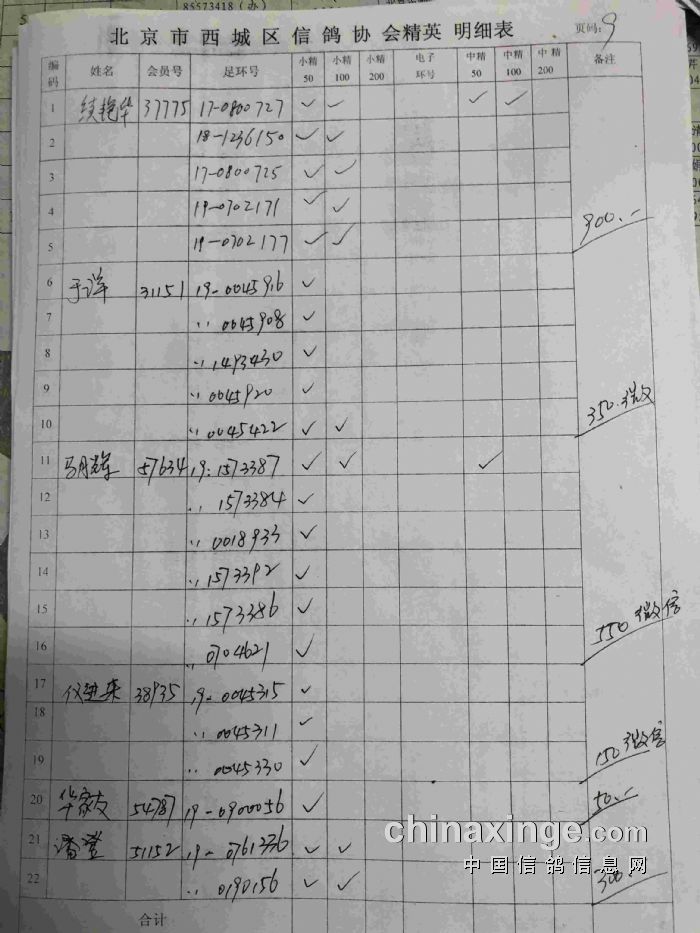 85573418(办)
5
北京市西城区信鸽协会精英 明细表
页码: 9
编码 姓名 会员号 足环号 小精50 小精100 小精200 电子环号 中精50 中精100 中精200 备注
1 37775 17-0800727 ✓ ✓ ✓ ✓
2 18-1236150 ✓ ✓
3 17-0800725 ✓ ✓
4 19-0702171 ✓ ✓
5 19-0702177 ✓ ✓ 900.-
6 于洋 31151 19-0045916 ✓
7 〃 0045908 ✓
8 〃 1493430 ✓
9 〃 0045920 ✓
10 〃 0045422 ✓ ✓ 350.微
11 57634 19-1573387 ✓ ✓ ✓
12 〃 1573384 ✓
13 〃 0018933 ✓
14 〃 1573392 ✓
15 〃 1573386 ✓
16 〃 0704621 ✓ 550 微信
17 仪进来 38935 19-0045315 ✓
18 〃 0045311 ✓
19 〃 0045330 ✓ 150 微信
20 华家友 54787 19-0900056 ✓ 50.-
21 潘登 51152 19-0761336 ✓ ✓
22 〃 0190156 ✓ ✓ 300.-
合计
chinaxinge.com
中国信鸽信息网